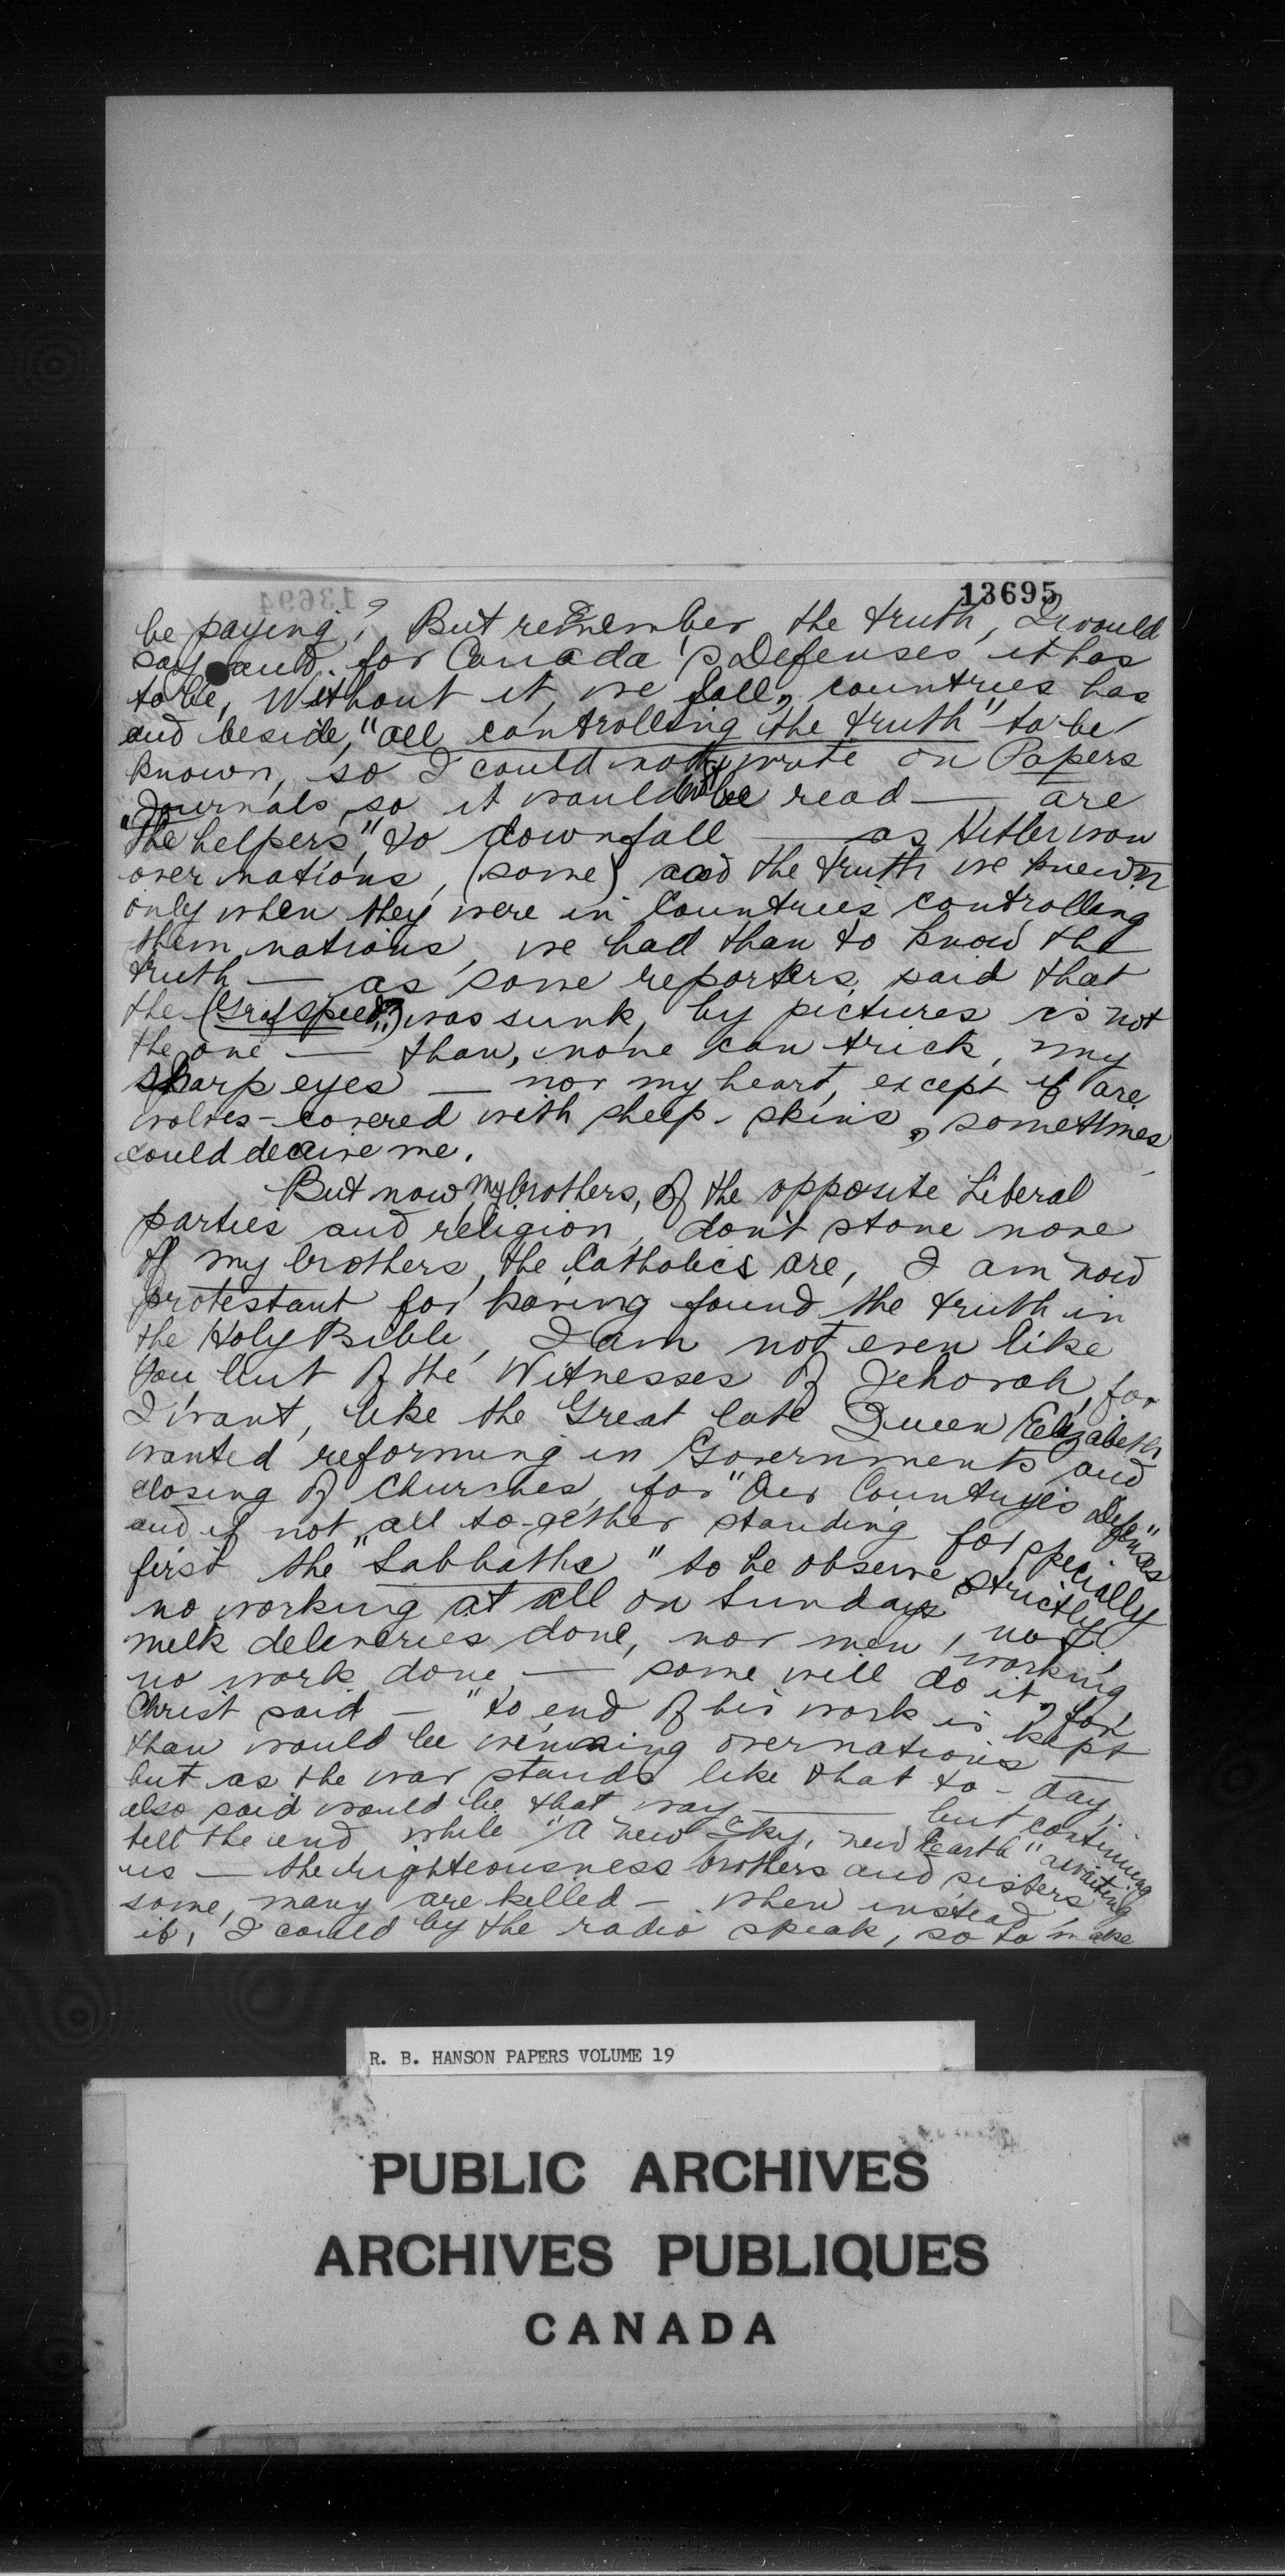 13695
be paying? But remember the truth, I would
say and for Canada's Defenses it has
to be, Without it, we fall, countries has
and beside, "all controlling the truth" to be
known, so I could not write on Papers
Journals, so it would be read — are
"the helpers" to downfall — as Hitler won
over nations, (some) and the truth we knewn
only when they were in Countries controlling
them nations, we had than to know the
truth — as some reporters, said that
the (Graf Speed) was sunk, by pictures is not
the one — than, none can trick, my
sharp eyes — nor my heart, except if are
wolves-covered with sheep-skins, sometimes
could deceive me.
But now my brothers, of the opposite Liberal
parties and religion, don't stone none
of my brothers, the Catholics are, I am now
protestant for having found the truth in
the Holy Bible, I am not even like
You but of the Witnesses of Jehovah, for
I want, like the Great late Queen Elizabeth
wanted reforming in Governments and
closing of Churches, for "Our Country's Defenses"
and if not, all to-gether standing for specially
first the "Sabbaths" to be observe strictly,
no working at all on Sundays, not
melk deliveries done, nor men, working
no work done — some will do it, for
Christ said — "to end of his work is kept
than would be winning over nations —
but as the war stands like that to-day,
also said would be that way — but continuing
till the end while "A new Sky, new Earth" awaiting
us — the righteousness brothers and sisters
some, many are killed — when instead,
if, I could by the radio speak, so to make
R. B. HANSON PAPERS VOLUME 19
PUBLIC ARCHIVES
ARCHIVES PUBLIQUES
CANADA